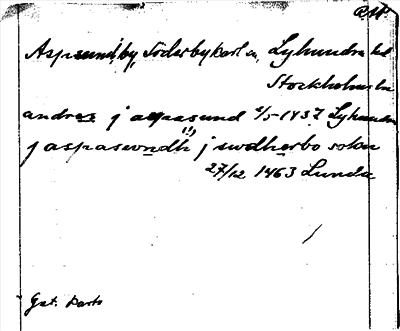 RW
Aspsund by, Söderbykarl sn, Lyhundra hd
Stockholms ln
andres j aspasund 2/5 1437 Lyhundra
j aspaswndh (!) j swdherbo sokn
27/12 1463 Lunda
Gst. Karts